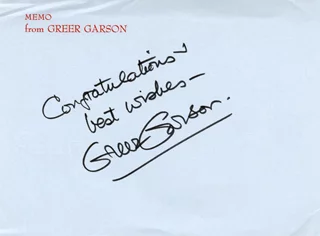 MEMO
from GREER GARSON
Congratulations &
best wishes —
Greer Garson.